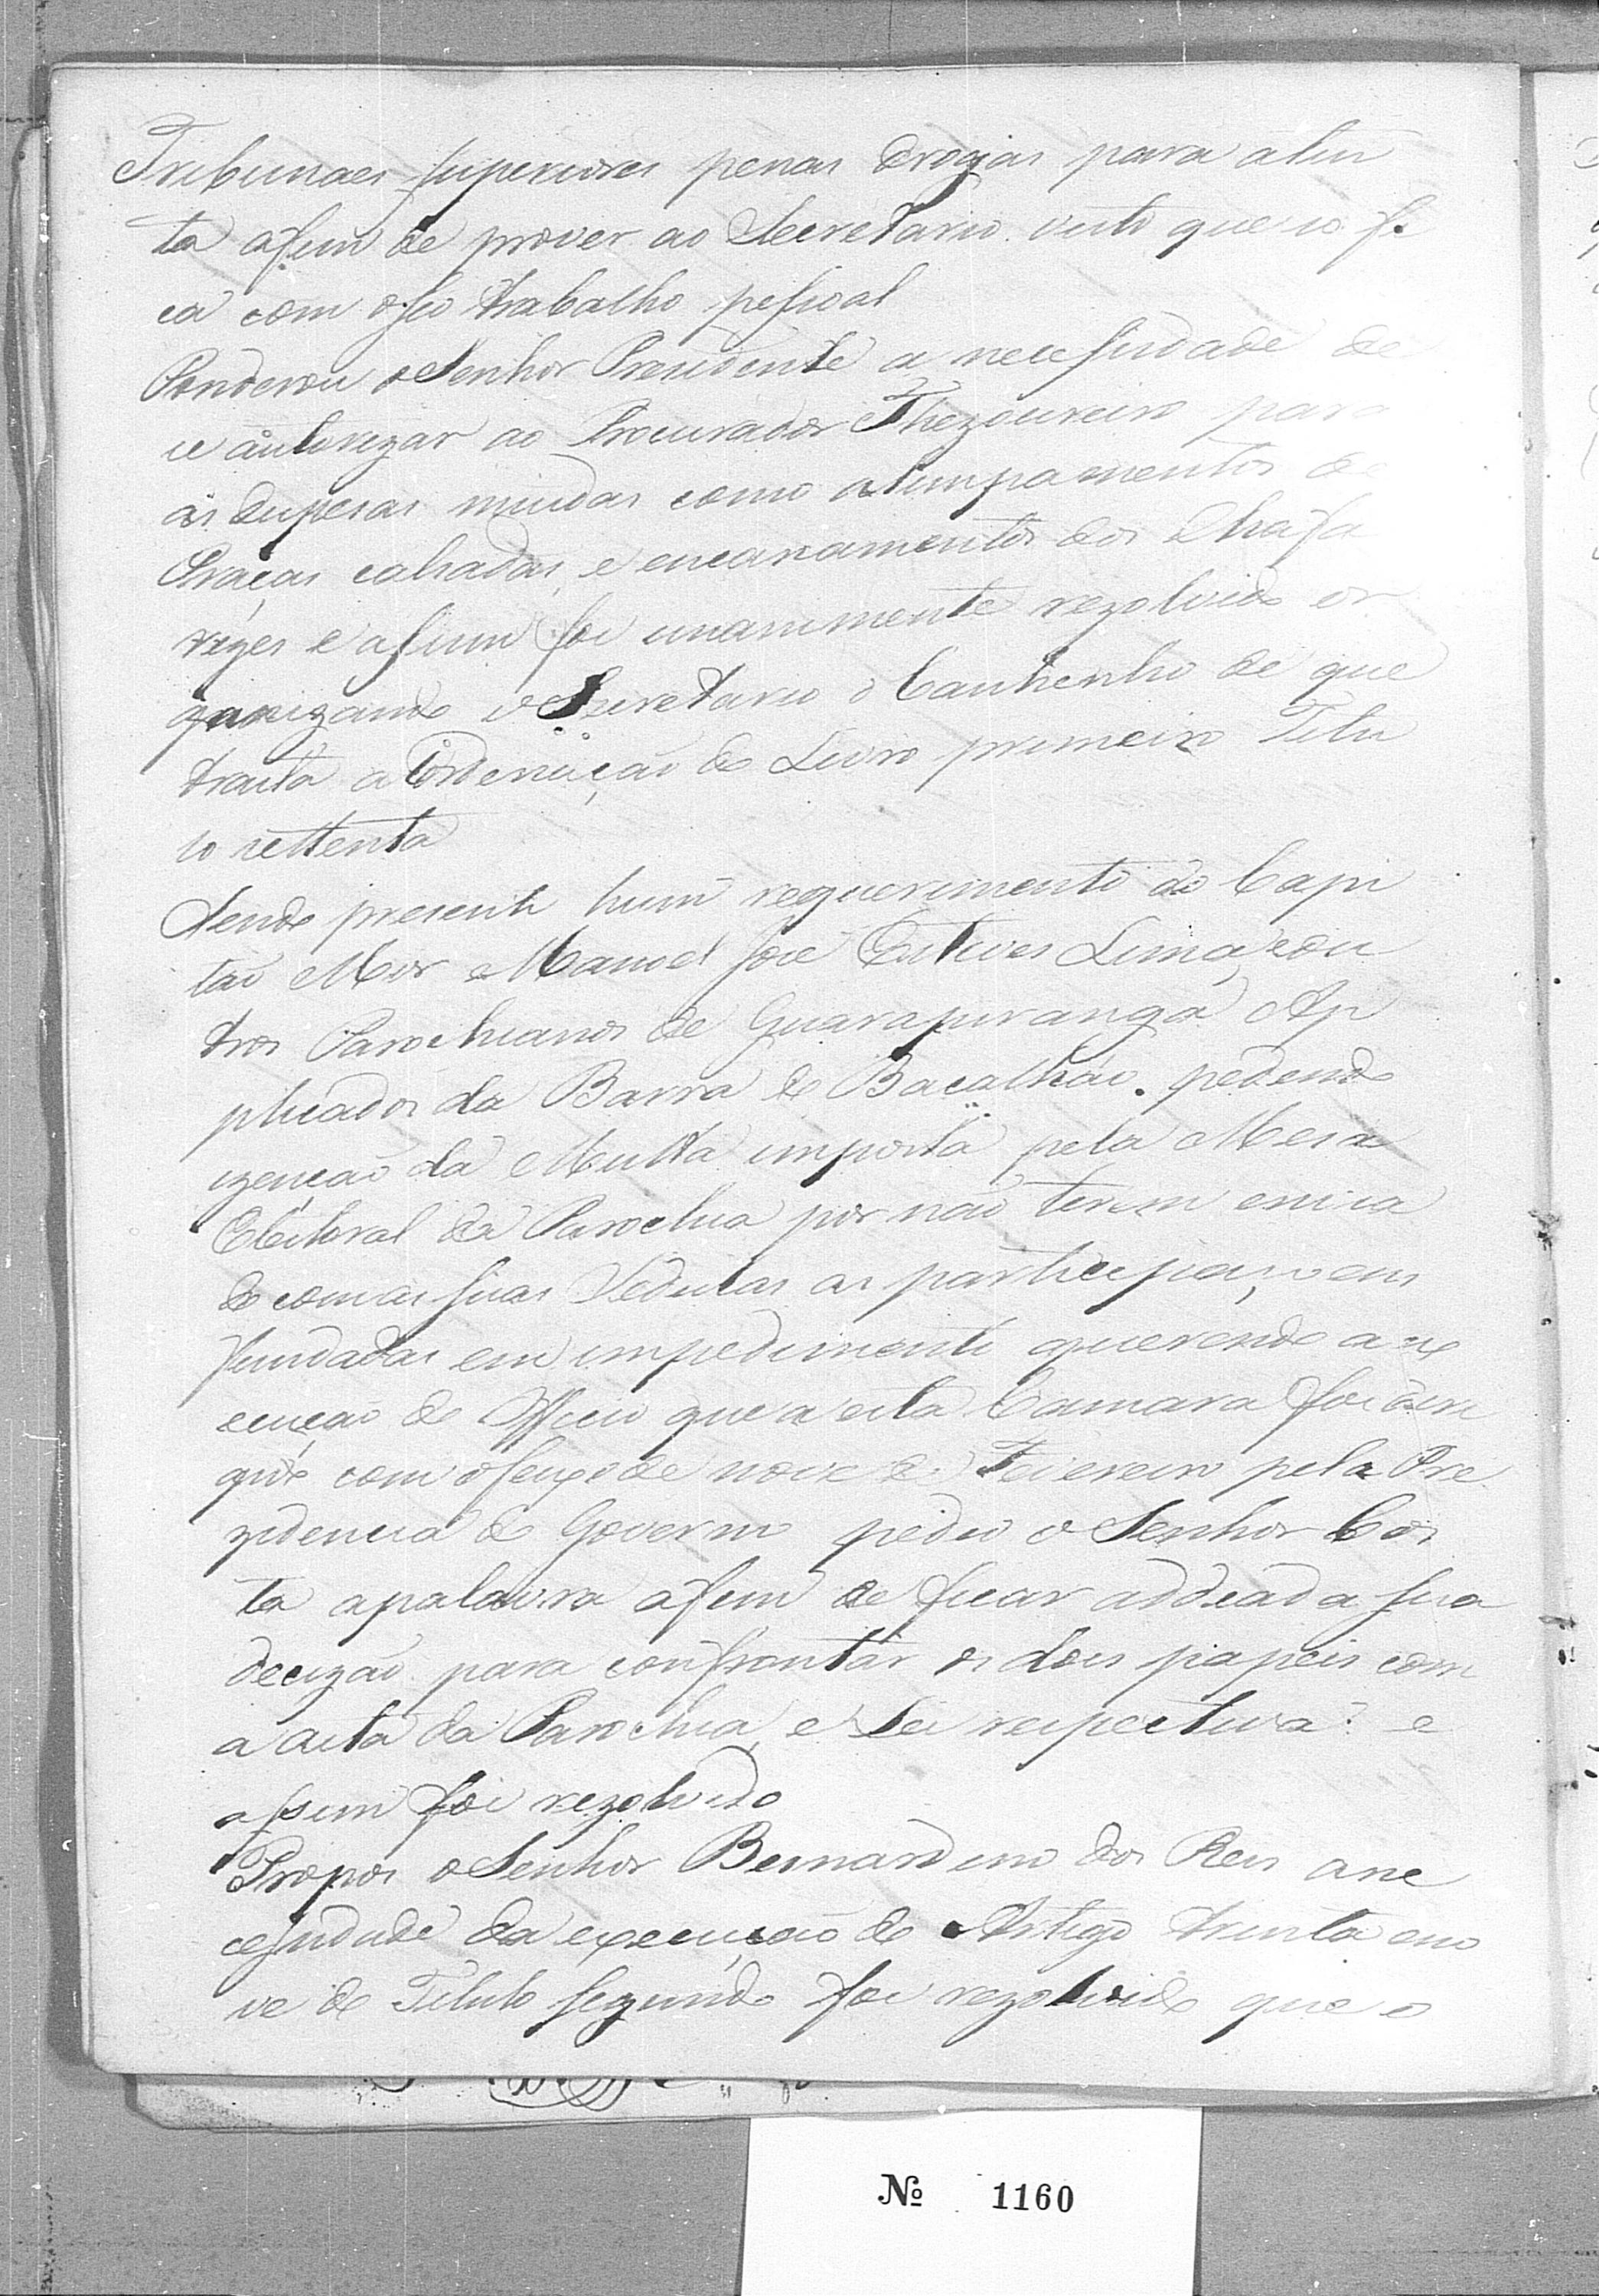 Tribunaes superiores penas drogias para a tin
ta afim de prover ao Secretario visto que so fi
ca com o seo trabalho pessoal
Ponderou o Senhor Prezidente a necessidade de
se autorizar ao Procurador Thezoureiro para
as despesas miudas como alimpamentos de
Praças calçadas, e encanamentos dos Chafa
rizes e assim foi unanimente rezolvido or
ganizando o Secretario o Canhenho de que
tracta a Ordenação do Livro primeiro Titu
lo settenta
Sendo presente hum requerimento do Capi
tão Mor Manoel Joze Esteves Lima, e ou
tros Parochianos de Guarapiranga Ap
plicados da Barra do Bacalháo. pedindo
izenção da Multa imposta pela Mesa
Eleitoral da Parochia por não terem envia
do com as suas Cedulas as participaçoens
fundadas em impedimento querendo a ex
ecução do Officio que a esta Camara foi diri
gido com o fexo de nove de Fevereiro pela Pre
zidencia do Governo pedio o Senhor Cos
ta a palavra afim de ficar addiada sua
decizão para confrontar os dois papeis com
a acta da Parochia, e Lei respectiva: e
assim foi rezolvido
Propos o Senhor Bernardino dos Reis a ne
cessidade da execução do Artigo trinta e no
ve do Titulo segundo foi rezolvido que o
Nº 1160